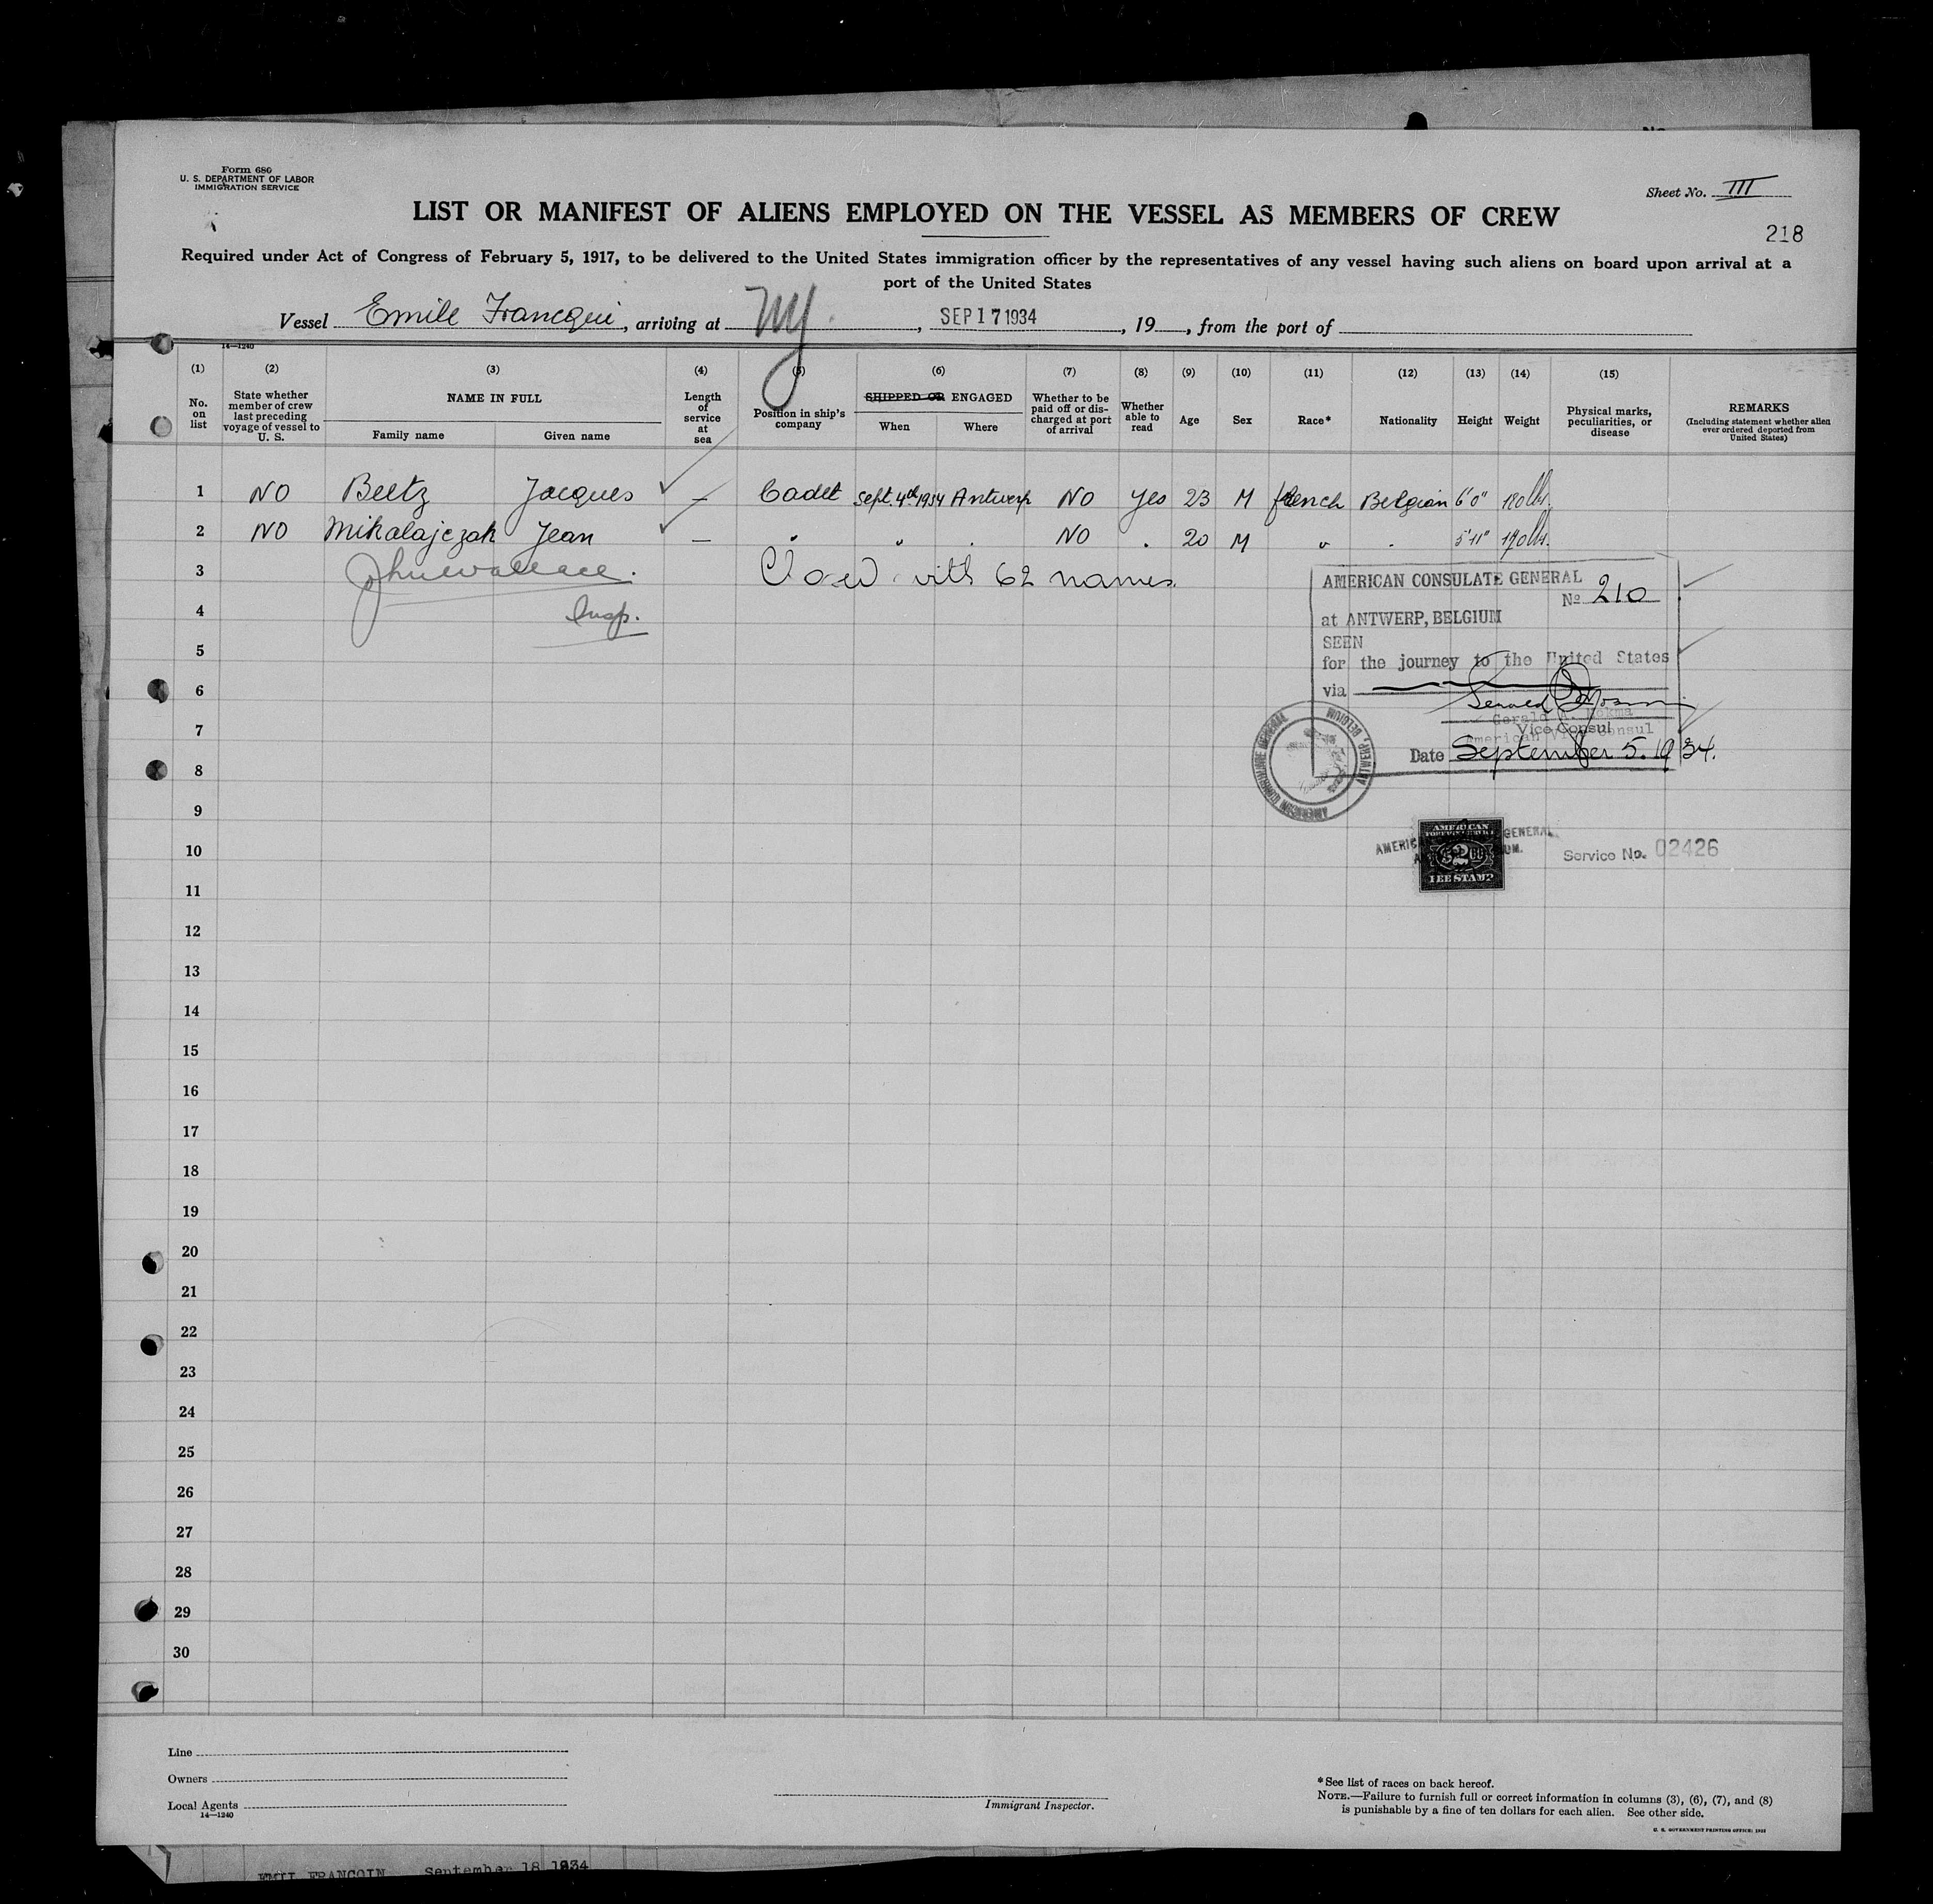 Form 680
U. S. DEPARTMENT OF LABOR
IMMIGRATION SERVICE
Sheet No. III
LIST OR MANIFEST OF ALIENS EMPLOYED ON THE VESSEL AS MEMBERS OF CREW
218
Required under Act of Congress of February 5, 1917, to be delivered to the United States immigration officer by the representatives of any vessel having such aliens on board upon arrival at a
port of the United States
Vessel Emile Francqui, arriving at NY, SEP 17 1934, 19, from the port of
14—1240
(1) (2) (3) (4) (5) (6) (7) (8) (9) (10) (11) (12) (13) (14) (15)
No. on list
State whether member of crew last preceding voyage of vessel to U. S.
NAME IN FULL
Family name Given name
Length of service at sea
Position in ship's company
SHIPPED OR ENGAGED
When Where
Whether to be paid off or discharged at port of arrival
Whether able to read
Age
Sex
Race*
Nationality
Height
Weight
Physical marks, peculiarities, or disease
REMARKS
(Including statement whether alien ever ordered deported from United States)
1 NO Beetz Jacques — Cadet Sept. 4th 1934 Antwerp NO Yes 23 M french Belgian 6'0" 180 lbs.
2 NO Mikolajczak Jean — " " " NO " 20 M " " 5'11" 170 lbs.
3 John Wallace. with 62 names
4 Insp.
AMERICAN CONSULATE GENERAL
No 210
at ANTWERP, BELGIUM
SEEN
for the journey to the United States
via
Vice Consul
American Vice Consul
Date September 5. 1934.
AMERICAN CONSULATE GENERAL ANTWERP, BELGIUM
5
6
7
8
9
10
AMERICAN
$2.00
FEE STAMP
GENERAL
Service No. 02426
11
12
13
14
15
16
17
18
19
20
21
22
23
24
25
26
27
28
29
30
Line
Owners
Local Agents
14—1240
Immigrant Inspector.
*See list of races on back hereof.
NOTE.—Failure to furnish full or correct information in columns (3), (6), (7), and (8)
is punishable by a fine of ten dollars for each alien. See other side.
U. S. GOVERNMENT PRINTING OFFICE:
EMIL FRANCQIN September 18 1934